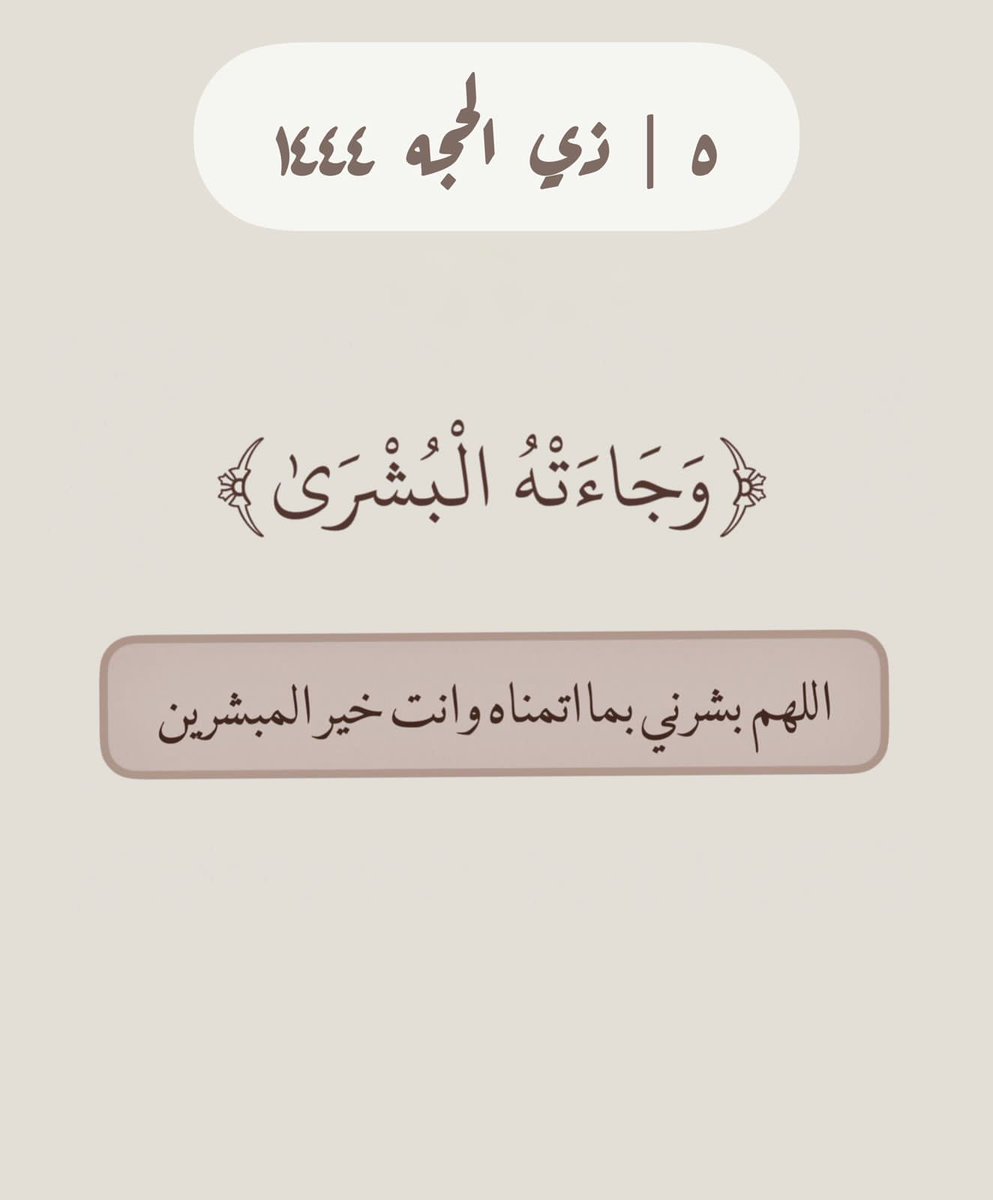 ٥ | ذي الحجه ١٤٤٤
﴿وَجَاءَتْهُ الْبُشْرَىٰ﴾
اللهم بشرني بما اتمناه وانت خير المبشرين